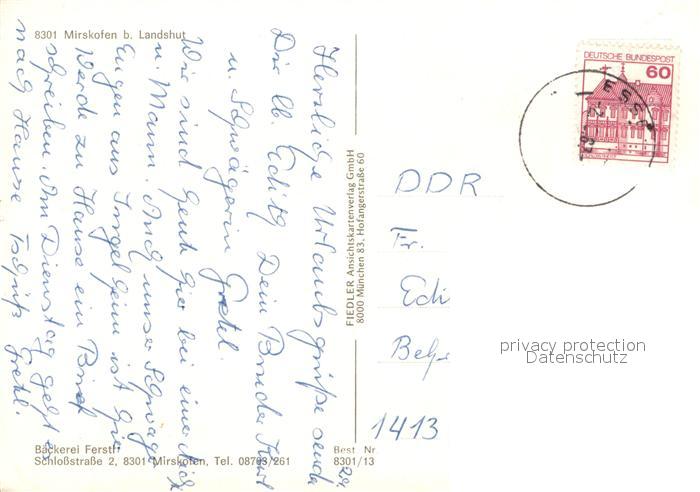 8301 Mirskofen b. Landshut
Herzliche Urlaubsgrüße sendet
Dir lb. Edith Dein Bruder Kurt
u. Schwägerin Gretl.
Wir sind heute hier bei einer
u. Mann. Auch unser Schwager
Eugen aus Ingelheim ist hier
Werde zu Hause ein Brief
schreiben. Am Dienstag geht es
nach Hause Tschüß Gretl.
Bäckerei Ferstl
Schloßstraße 2, 8301 Mirskofen, Tel. 08703/261
Best Nr
8301/13
FIEDLER Ansichtskartenverlag GmbH
8000 München 83, Hofangerstraße 60
DEUTSCHE BUNDESPOST
60
DDR
Fr.
Edi
1413
privacy protection
Datenschutz